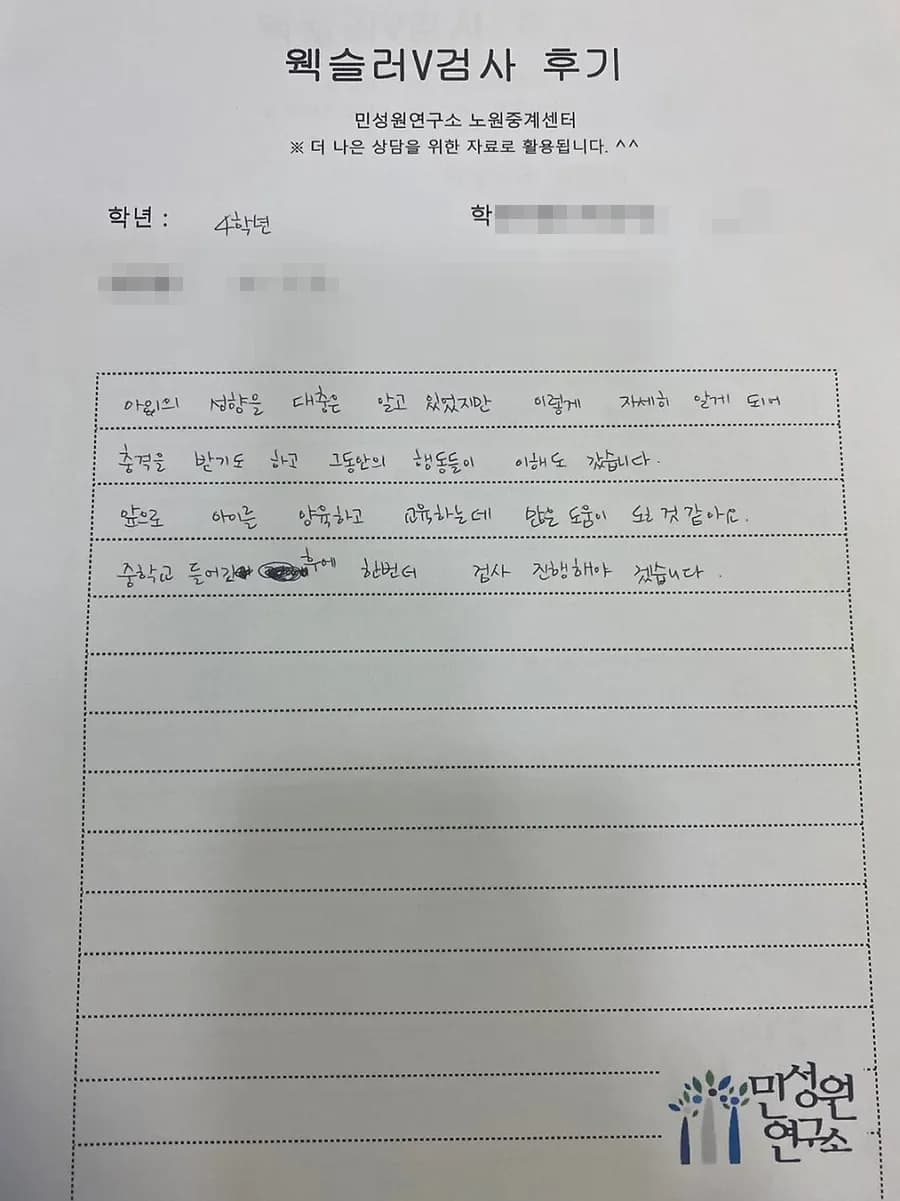 웩슬러V검사 후기
민성원연구소 노원중계센터
※ 더 나은 상담을 위한 자료로 활용됩니다. ^^
학년 : 4학년 학
아이의 성향을 대충은 알고 있었지만 이렇게 자세히 알게 되어
충격을 받기도 하고 그동안의 행동들이 이해도 갔습니다.
앞으로 아이를 양육하고 교육하는데 많은 도움이 될 것 같아요.
중학교 들어간 후에 한번더 검사 진행해야 겠습니다.
민성원
연구소